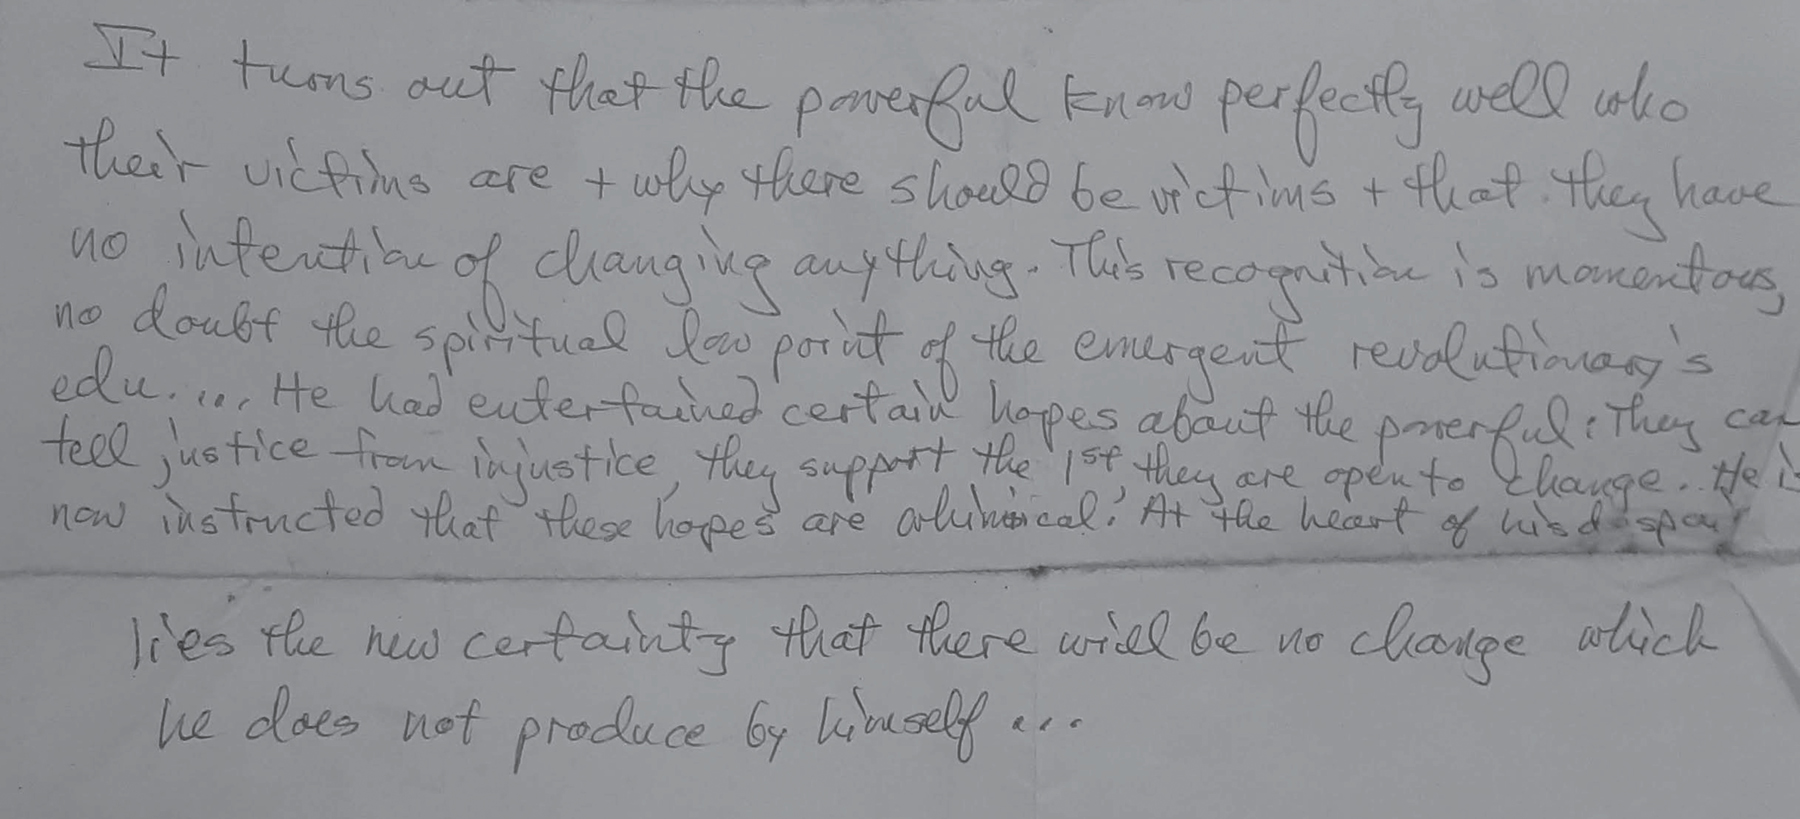 It turns out that the powerful know perfectly well who
their victims are + why there should be victims + that they have
no intention of changing anything. This recognition is momentous,
no doubt the spiritual low point of the emergent revolutionary's
edu. ... He had entertained certain hopes about the powerful: They can
tell justice from injustice, they support the 1st, they are open to change. He is
now instructed that these hopes are whimsical! At the heart of his despair
lies the new certainty that there will be no change which
he does not produce by himself ...